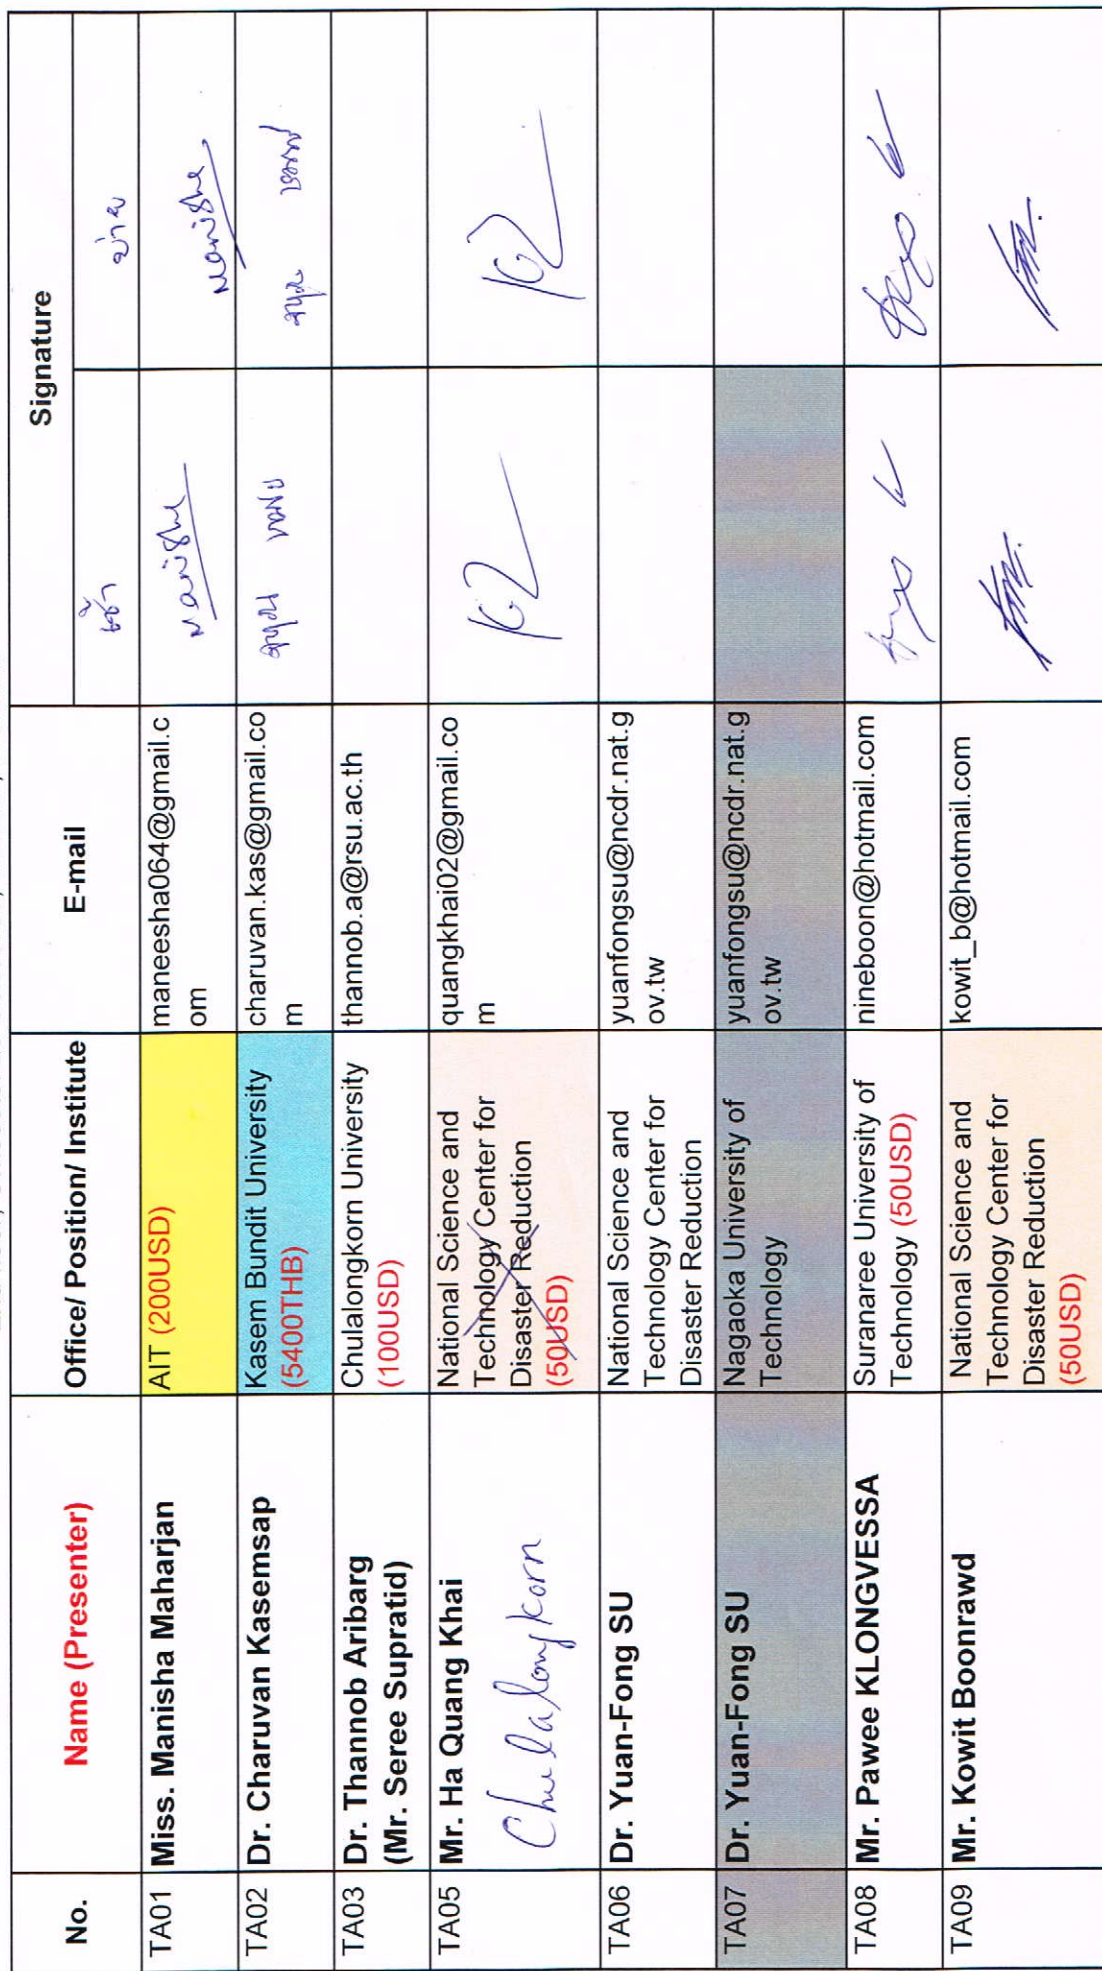 No.
Name (Presenter)
Office/ Position/ Institute
E-mail
Signature
เช้า
บ่าย
TA01
Miss. Manisha Maharjan
AIT (200USD)
maneesha064@gmail.c
om
Manisha
Manisha
TA02
Dr. Charuvan Kasemsap
Kasem Bundit University
(5400THB)
charuvan.kas@gmail.co
m
TA03
Dr. Thannob Aribarg
(Mr. Seree Supratid)
Chulalongkorn University
(100USD)
thannob.a@rsu.ac.th
TA05
Mr. Ha Quang Khai
Chulalongkorn
National Science and
Technology Center for
Disaster Reduction
(50USD)
quangkhai02@gmail.co
m
TA06
Dr. Yuan-Fong SU
National Science and
Technology Center for
Disaster Reduction
yuanfongsu@ncdr.nat.g
ov.tw
TA07
Dr. Yuan-Fong SU
Nagaoka University of
Technology
yuanfongsu@ncdr.nat.g
ov.tw
TA08
Mr. Pawee KLONGVESSA
Suranaree University of
Technology (50USD)
nineboon@hotmail.com
TA09
Mr. Kowit Boonrawd
National Science and
Technology Center for
Disaster Reduction
(50USD)
kowit_b@hotmail.com